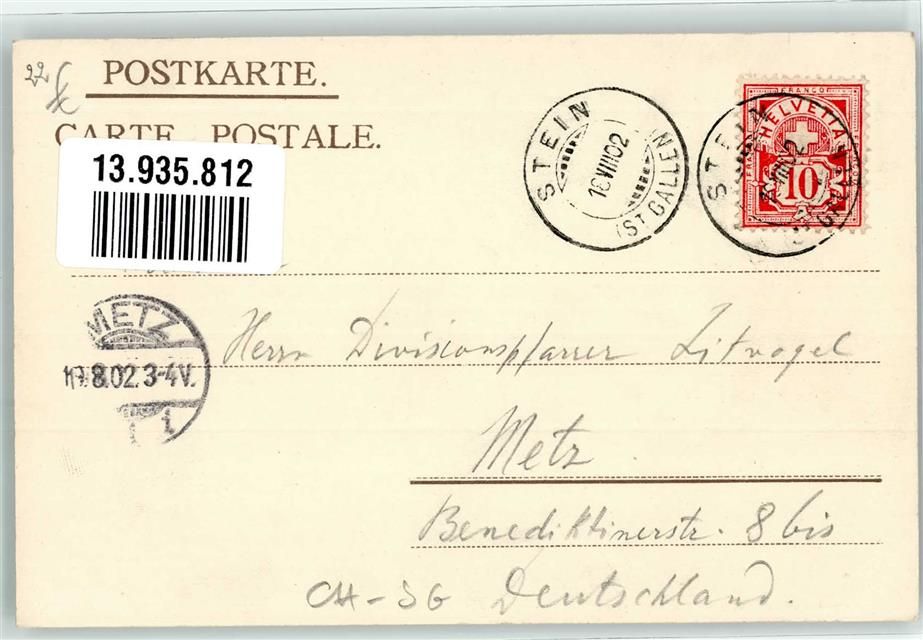 22
POSTKARTE.
CARTE POSTALE.
13.935.812
STEIN
16 VIII 02
(ST GALLEN)
FRANCO
HELVETIA
10
STEIN
VIII 02
METZ
8.02. 3-4V.
Herrn Divisionspfarrer Litvogel
Metz.
Benediktinerstr. 8 bis
CH-SG Deutschland.